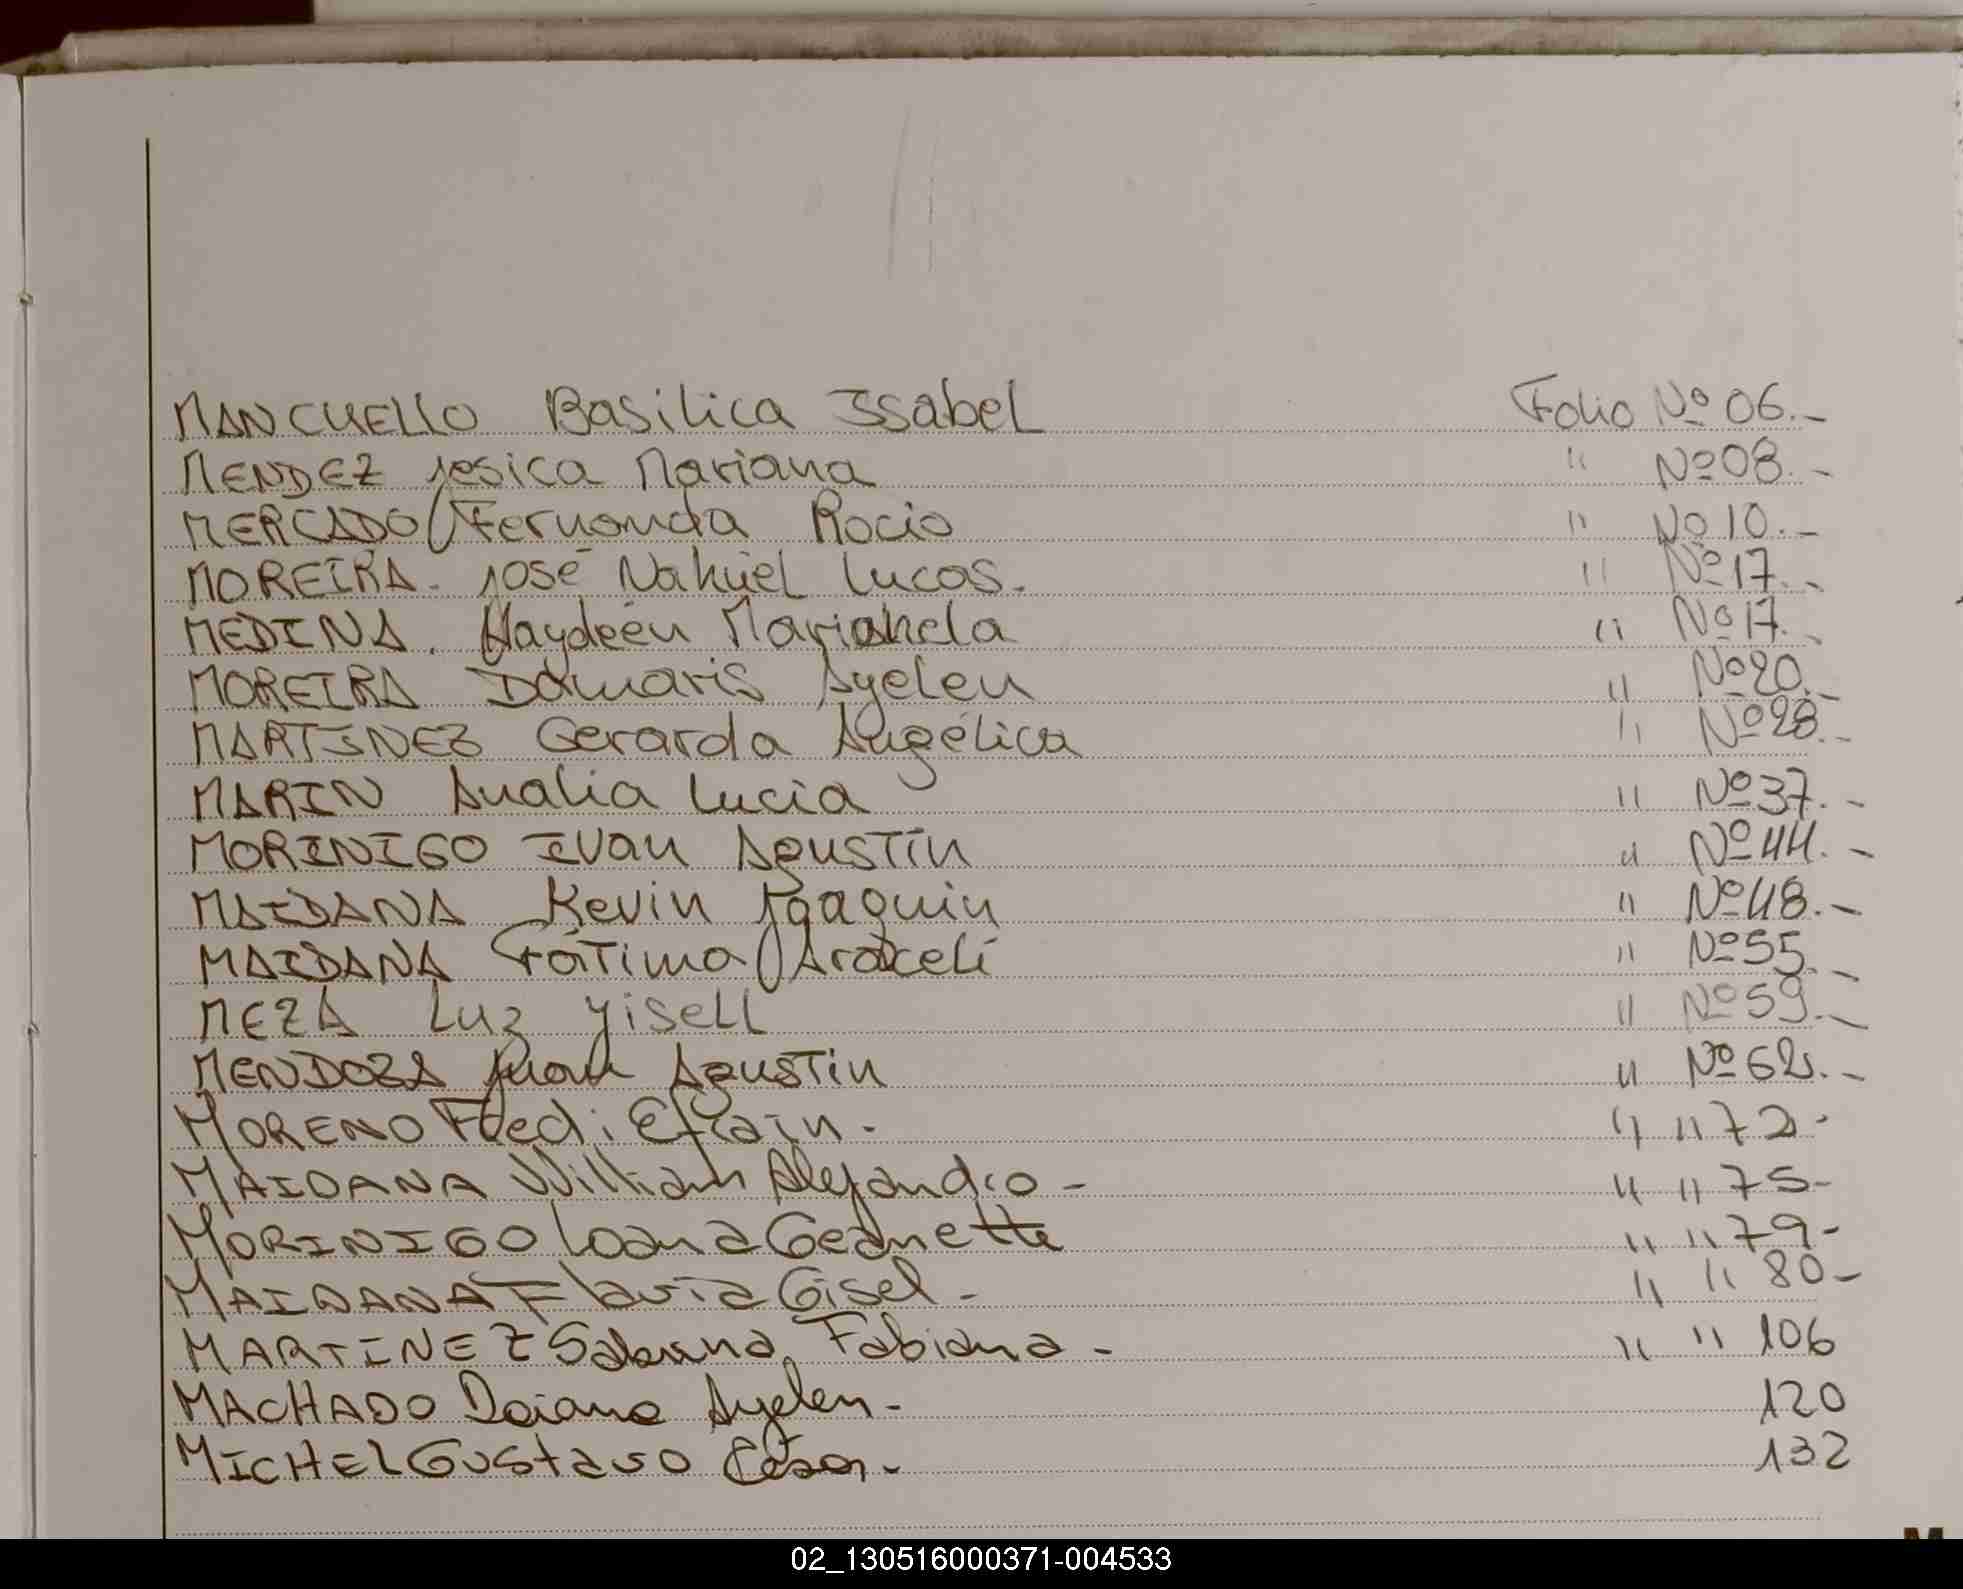 MANCUELLO Basilica Issabel Folio Nº 06.-
MENDEZ Jesica Mariana " Nº 08.-
MERCADO Fernanda Rocio " Nº 10.-
MOREIRA. José Nahuel Lucas. " Nº 17.-
MEDINA. Haydeéu Marianela " Nº 17.-
MOREIRA Damaris Ayelen " Nº 20.-
MARTINEZ Gerarda Angélica " Nº 28.-
MARIN Analia Lucia " Nº 37.-
MORINIGO Ivan Agustín " Nº 44.-
MAIDANA Kevin Joaquin " Nº 48.-
MAIDANA Fátima Araceli " Nº 55.-
MEZA Luz Yisell " Nº 59.-
MENDOZA Juan Agustin " Nº 62.-
MORENO Fredi Efrain. " " 72-
MAIDANA William Alejandro - " " 75-
MORINIGO Ioana Geanette " " 79-
MAIDANA Flavia Gisel - " " 80-
MARTINEZ Sabrina Fabiana - " " 106
MACHADO Daiana Ayelen - 120
MICHEL Gustavo César - 132
M
02_130516000371-004533